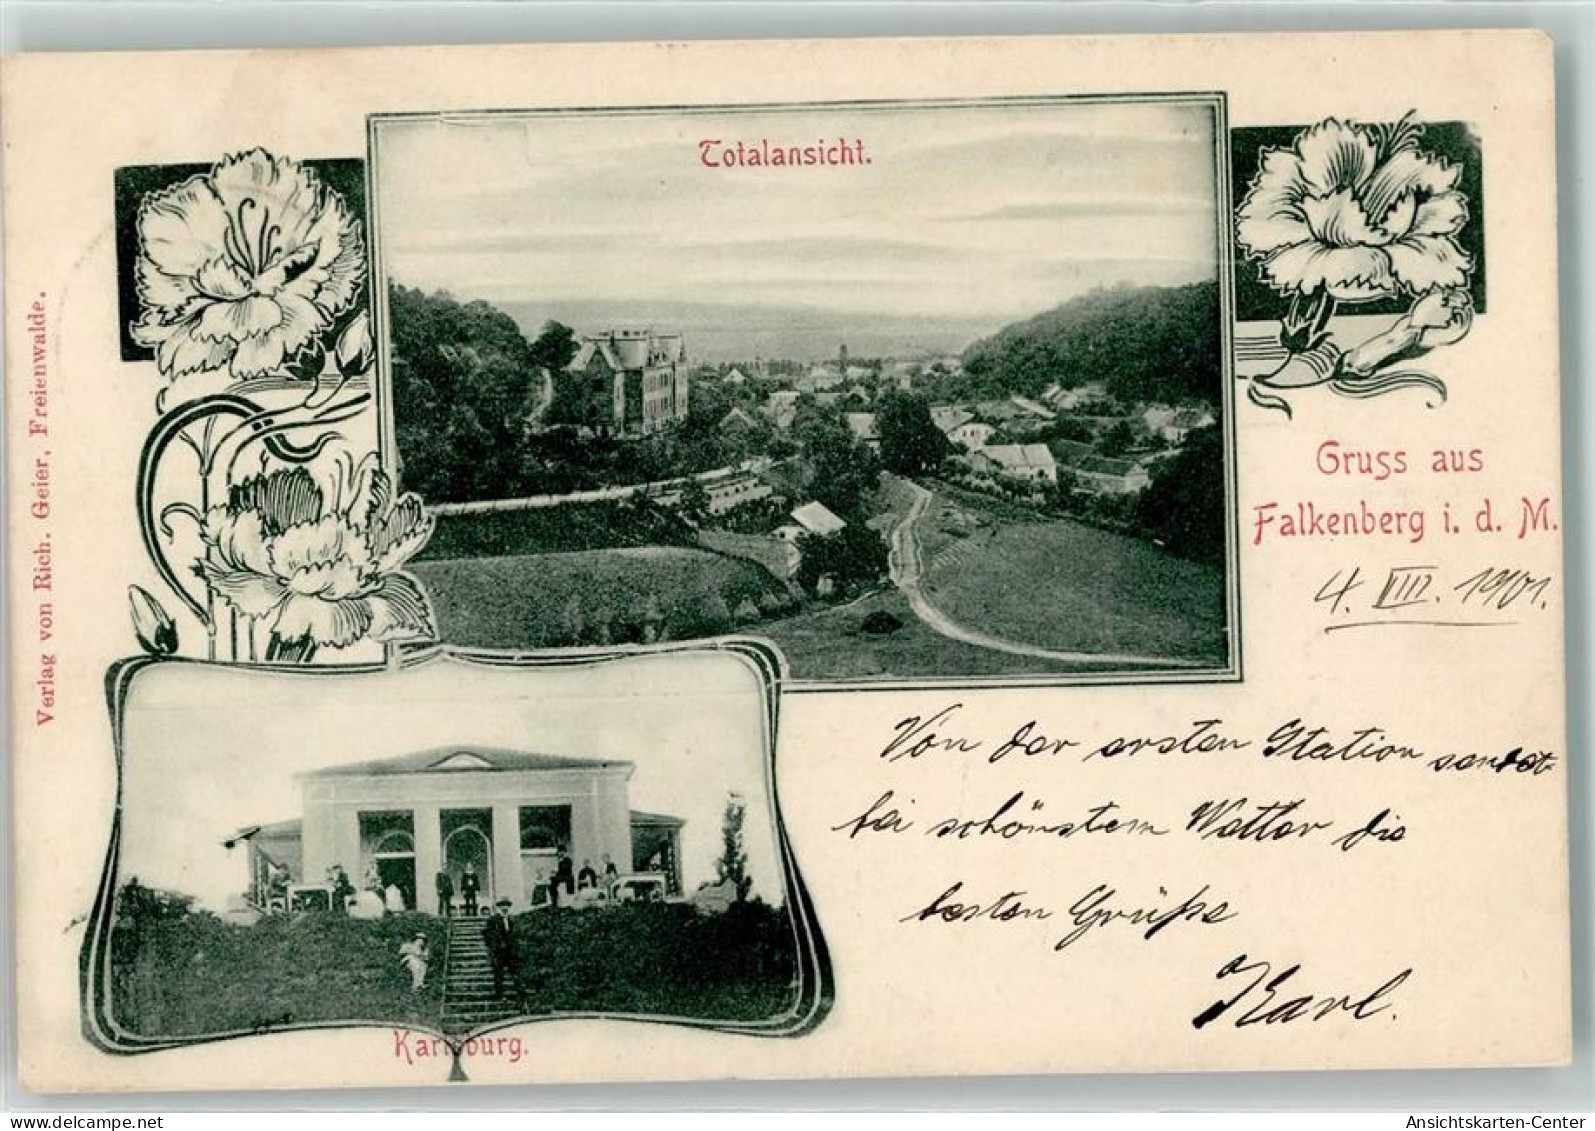 Totalansicht.
Verlag von Rich. Geier, Freienwalde.
Gruss aus
Falkenberg i. d. M.
4. VIII. 1901.
Von der ersten Station sendet
bei schönstem Wetter die
besten Grüße
Karl.
Karlsburg.
AnsichtsKarten-Center